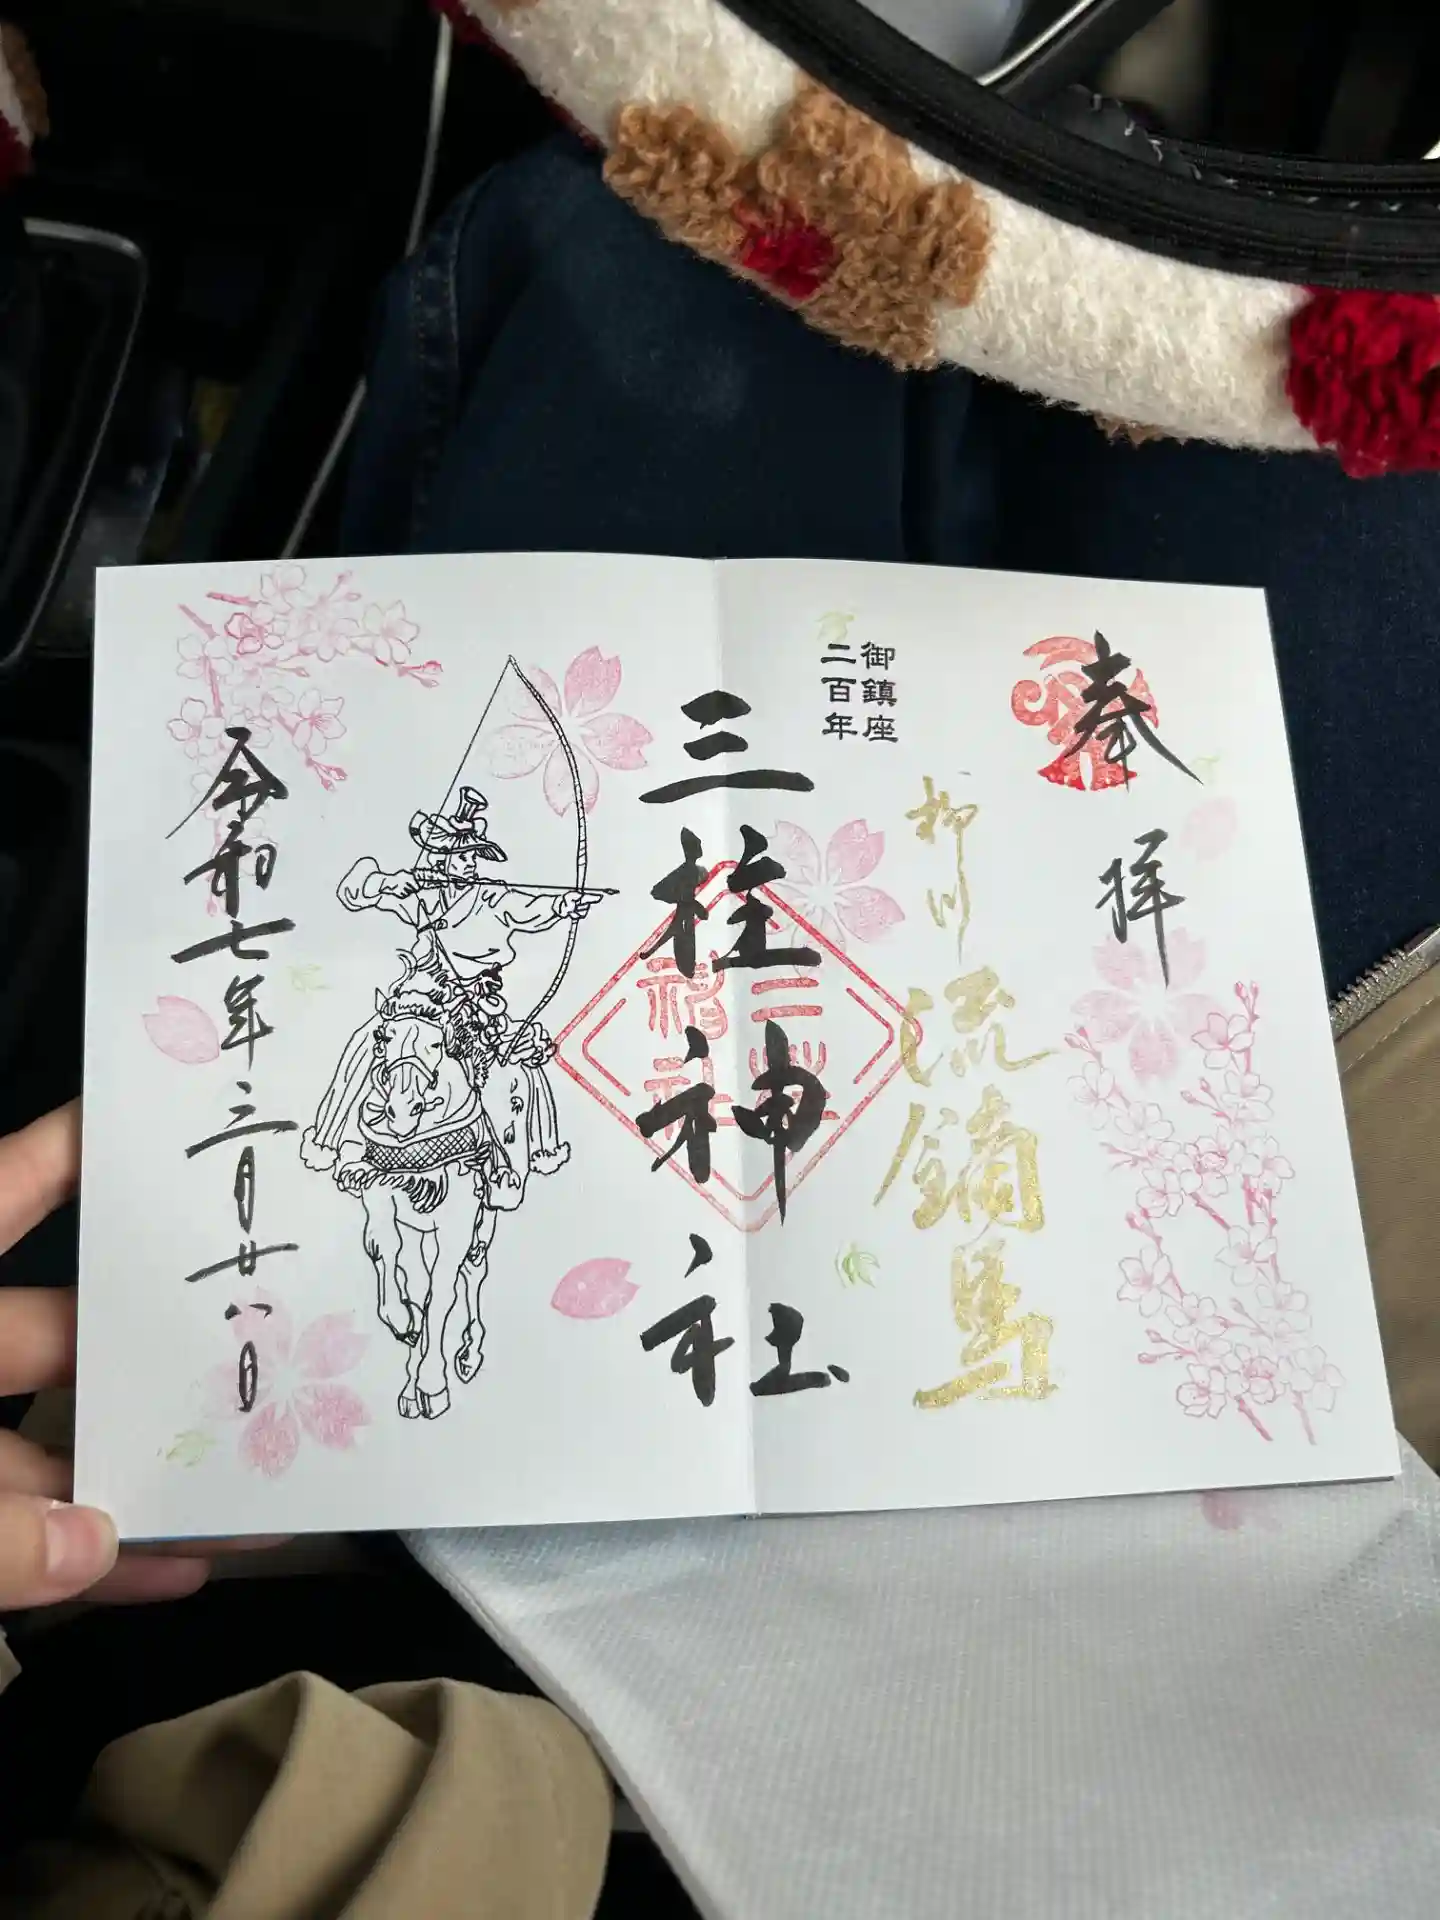 奉拝
柳川流鏑馬
御鎮座
二百年
三柱神社
三柱
神社
令和七年三月廿八日